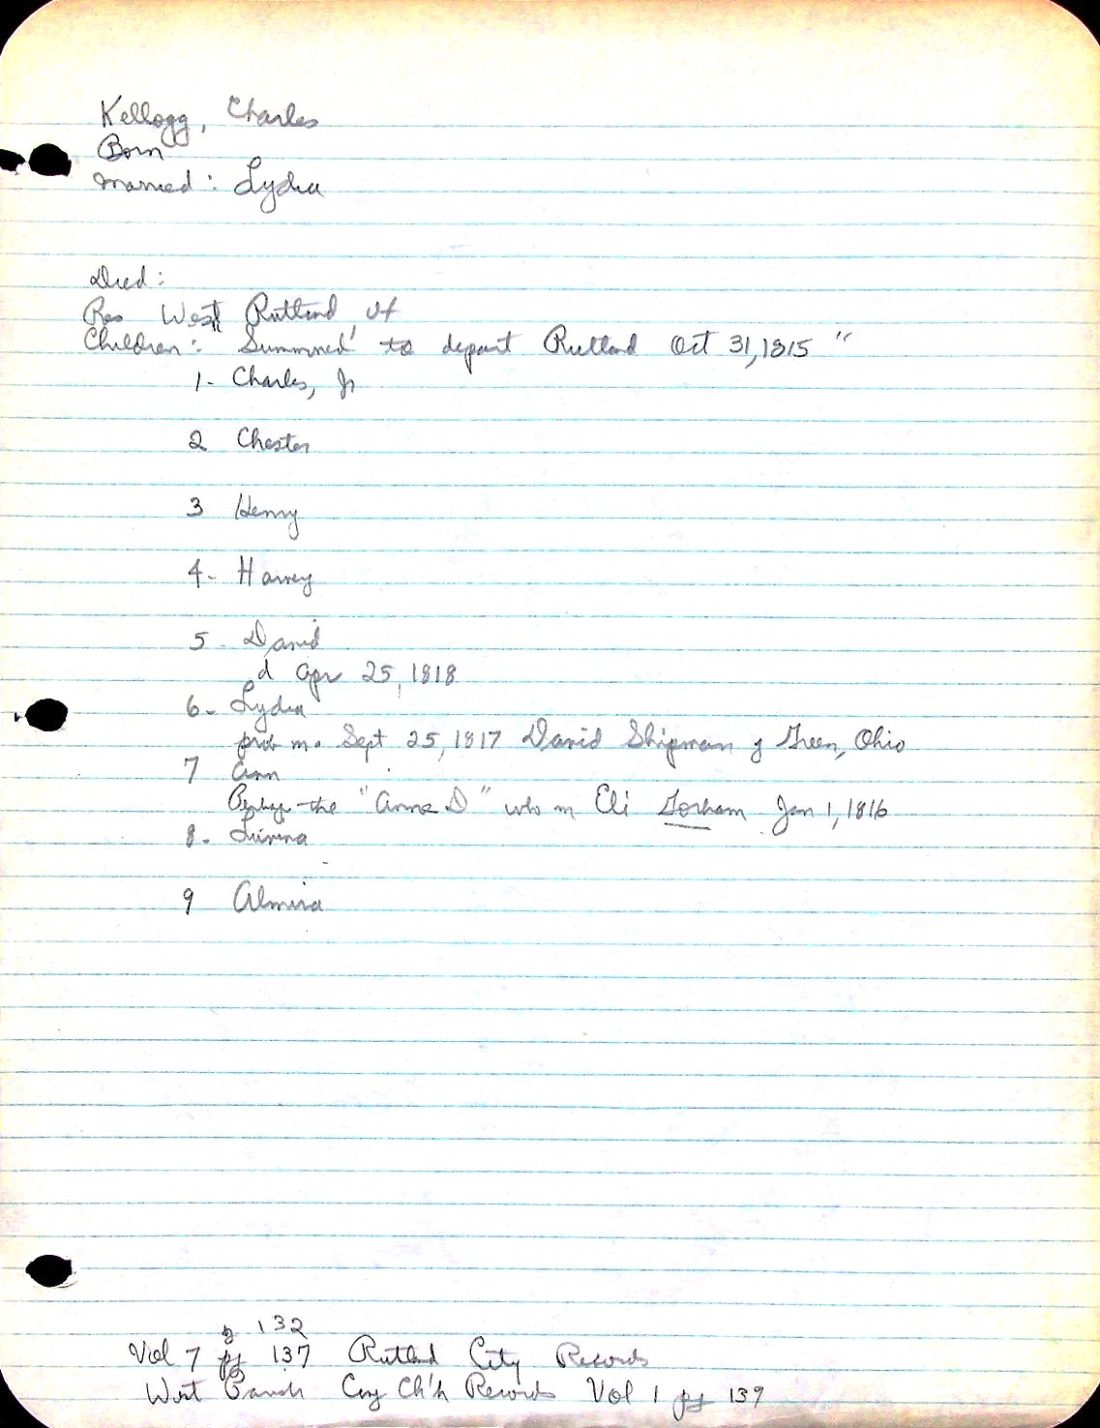 Kellogg, Charles
Born
Married: Lydia
Died:
Res West Rutland, Vt
Children: "Summned to depart Rutland Oct 31, 1815"
1- Charles, Jr
2 Chester
3 Henry
4- Harvey
5- David
d Apr 25, 1818
6- Lydia
prob m. Sept 25, 1817 David Shipman of Green, Ohio
7 Ann
the "Anna D" who m Eli Gorham Jan 1, 1816
8-
9 Almira
pg 132
Vol 7 pg 137 Rutland City Records
West Parish Cong Ch'h Records Vol 1 pg 139